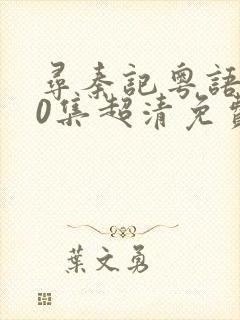 尋秦記粵語
0集超清免費
葉文勇